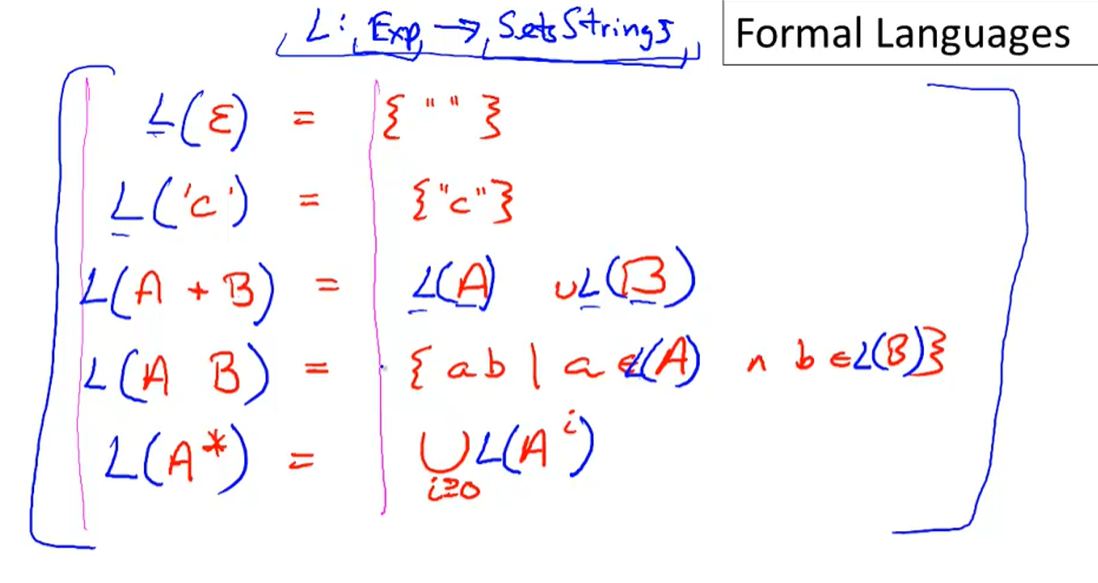 L: Exp → Sets Strings
Formal Languages
L(ε) = {" "}
L('c') = {"c"}
L(A + B) = L(A) ∪ L(B)
L(A B) = { ab | a ∈ L(A) ∧ b ∈ L(B)}
L(A*) = ⋃ L(Aⁱ)
i≥0